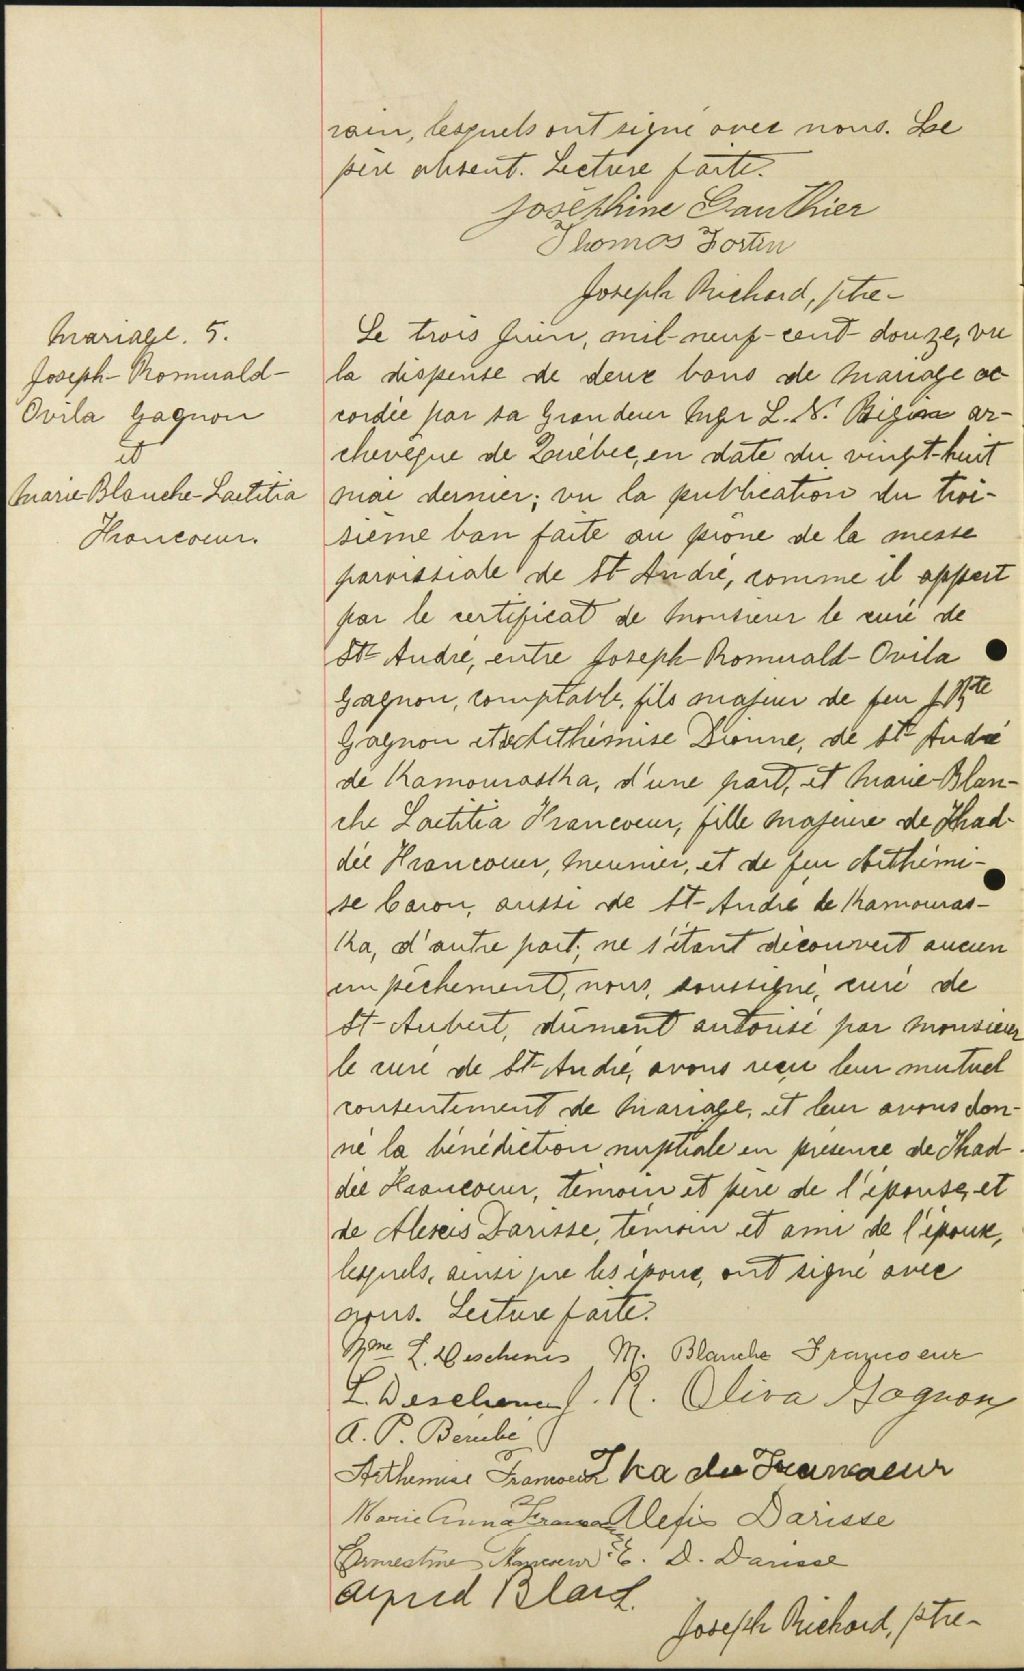 rain, lesquels ont signé avec nous. Le
père absent. Lecture faite.
Joséphine Gauthier
Thomas Fortin
Joseph Richard, ptre-
Mariage. 5.
Joseph-Romuald-
Ovila Gagnon
et
Marie-Blanche-Laetitia
Francoeur.
Le trois Juin, mil-neuf-cent-douze, vu
la dispense de deux bans de mariage ac-
cordée par sa Grandeur Mgr L. N. Bégin ar-
chevêque de Québec, en date du vingt-huit
mai dernier; vu la publication du troi-
sième ban faite au prône de la messe
paroissiale de St-André, comme il appert
par le certificat de Monsieur le curé de
St-André, entre Joseph-Romuald-Ovila
Gagnon, comptable, fils majeur de feu J. Bte
Gagnon et de Arthémise Dionne, de St-André
de Kamouraska, d'une part, et Marie-Blan-
che Laetitia Francoeur, fille majeure de Thad-
dée Francoeur, meunier, et de feu Arthémi-
se Caron, aussi de St-André de Kamouras-
ka, d'autre part; ne s'étant découvert aucun
empêchement, nous, soussigné, curé de
St-Aubert, dûment autorisé par Monsieur
le curé de St-André, avons reçu leur mutuel
consentement de mariage, et leur avons don-
né la bénédiction nuptiale en présence de Thad-
dée Francoeur, témoin et père de l'épouse, et
de Alexis Darisse, témoin et ami de l'époux,
lesquels, ainsi que les époux, ont signé avec
nous. Lecture faite.
Mme L. Deschenes M. Blanche Francoeur
L. Deschenes J. R. Oliva Gagnon
A. P. Bérubé
Arthemise Francoeur Thadée Francoeur
Marie Anna Francoeur Alexis Darisse
Ernestine Francoeur E. D. Darisse
Alfred Blais
Joseph Richard, ptre-